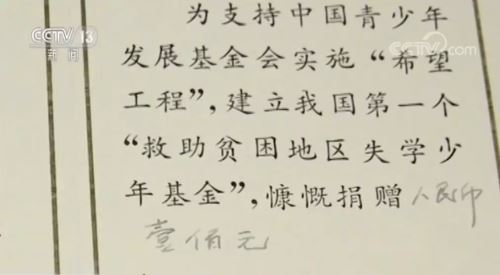 CCTV 13
新闻
为支持中国青少年
发展基金会实施“希望
工程”,建立我国第一个
“救助贫困地区失学少
年基金”,慷慨捐赠人民币
壹佰元